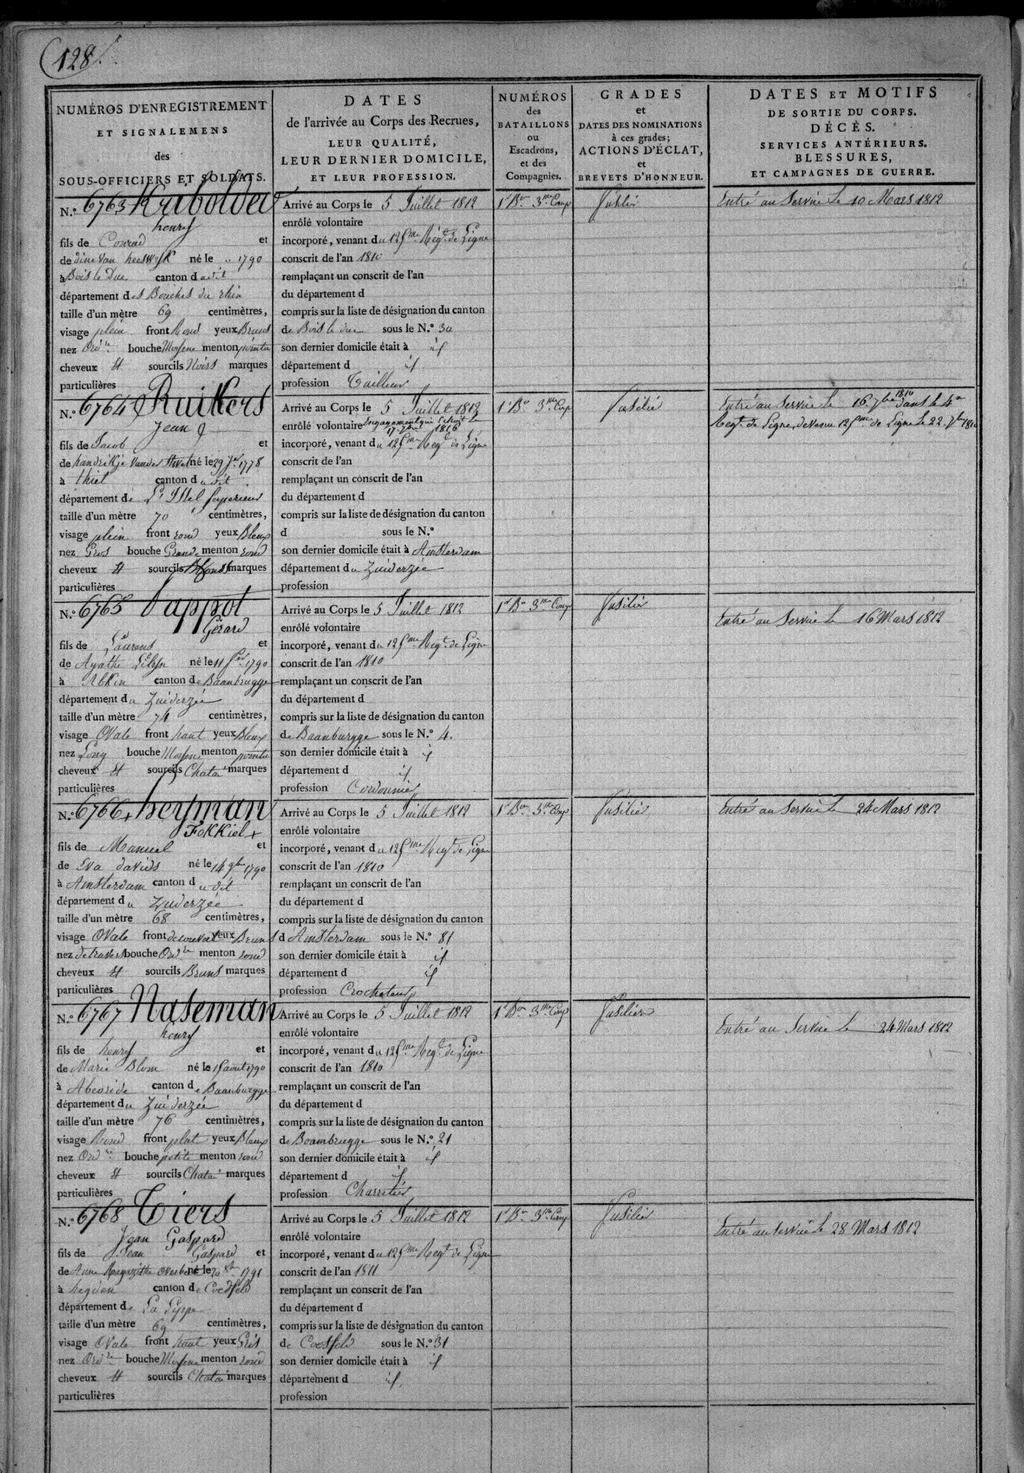 128
NUMÉROS D'ENREGISTREMENT
ET SIGNALEMENS
des
SOUS-OFFICIERS ET SOLDATS.
DATES
de l'arrivée au Corps des Recrues,
LEUR QUALITÉ,
LEUR DERNIER DOMICILE,
ET LEUR PROFESSION.
NUMÉROS
des
BATAILLONS
ou
Escadrons,
et des
Compagnies.
GRADES
et
DATES DES NOMINATIONS
à ces grades;
ACTIONS D'ÉCLAT,
et
BREVETS D'HONNEUR.
DATES ET MOTIFS
DE SORTIE DU CORPS.
DÉCÈS.
SERVICES ANTÉRIEURS.
BLESSURES,
ET CAMPAGNES DE GUERRE.
N.º 6763
henry
fils de Conrad et
de né le 1790
à Bois le Duc canton d
département des Bouches du rhin
taille d'un mètre 69 centimètres,
visage plein front Rond yeux Bruns
nez Ord.re bouche Moyene menton pointu
cheveux et sourcils Noirs marques
particulières
Arrivé au Corps le 5 Juillet 1812
enrôlé volontaire
incorporé, venant du 125me Régt. de Ligne
conscrit de l'an 1810
remplaçant un conscrit de l'an
du département d
compris sur la liste de désignation du canton
de Bois le duc sous le N.º 30
son dernier domicile était à
département d
profession Tailleur
1r Bon 3me Comp
fusilier
Entré au Service le 10 Mars 1812
N.º 6764 Ruikers
Jean
fils de Jacob et
de né le 29 1778
à thiel canton d
département de L'Issel Superieur
taille d'un mètre 70 centimètres,
visage plein front rond yeux Bleux
nez Gros bouche Grande menton rond
cheveux et sourcils Blonds marques
particulières
Arrivé au Corps le 5 Juillet 1812
enrôlé volontaire
incorporé, venant du 125me Régt. de Ligne
conscrit de l'an
remplaçant un conscrit de l'an
du département d
compris sur la liste de désignation du canton
d sous le N.º
son dernier domicile était à Amsterdam
département du Zuiderzée
profession
1r Bon 3me Comp
fusilier
Entré au Service le 16 7bre 1810 dans le
Regt. de Ligne, 125me de Ligne le 22
N.º 6765 Pappot
Gérard
fils de Laurens et
de Agathe né le 11 1790
à canton de Baanbrugge
département du Zuiderzée
taille d'un mètre 74 centimètres,
visage Ovale front haut yeux Bleux
nez Long bouche Moyene menton pointu
cheveux et sourcils Chatn marques
particulières
Arrivé au Corps le 5 Juillet 1812
enrôlé volontaire
incorporé, venant du 125me Regt. de Ligne
conscrit de l'an 1810
remplaçant un conscrit de l'an
du département d
compris sur la liste de désignation du canton
de Baanburgge sous le N.º 4.
son dernier domicile était à
département d
profession Cordonnier
1r Bon 3me Comp
fusilier
Entré au Service le 16 Mars 1812
N.º 6766 heyman
Fokkiel
fils de Manuel et
de Eva davids né le 14 9bre 1790
à Amsterdam canton du dit
département du Zuiderzée
taille d'un mètre 68 centimètres,
visage Ovale front decouvert yeux Bruns
nez bouche Ordre menton rond
cheveux et sourcils Bruns marques
particulières
Arrivé au Corps le 5 Juillet 1812
enrôlé volontaire
incorporé, venant du 125me Regt. de Ligne
conscrit de l'an 1810
remplaçant un conscrit de l'an
du département d
compris sur la liste de désignation du canton
d Amsterdam sous le N.º 81
son dernier domicile était à
département d
profession Crocheteur
1r Bon 3me Comp
fusilier
Entré au Service le 24 Mars 1812
N.º 6767 Nateman
henry
fils de henry et
de Marie Blom né le 15 aout 1790
à Abcoude canton de Baanburgge
département du Zuiderzée
taille d'un mètre 76 centimètres,
visage Rond front plat yeux Bleux
nez Ordre bouche petite menton rond
cheveux et sourcils Chatn marques
particulières
Arrivé au Corps le 5 Juillet 1812
enrôlé volontaire
incorporé, venant du 125me Regt. de Ligne
conscrit de l'an 1810
remplaçant un conscrit de l'an
du département d
compris sur la liste de désignation du canton
de Baambrugge sous le N.º 21
son dernier domicile était à
département d
profession Charretier
1r Bon 3me Comp
fusilier
Entré au Service le 24 Mars 1812
N.º 6768 Tiers
Jean Gaspard
fils de Jean Gaspard et
de Anne né le 20 1791
à canton de Coesfeld
département de La Lippe
taille d'un mètre 69 centimètres,
visage Ovale front haut yeux Gris
nez Ordre bouche Moyene menton rond
cheveux et sourcils Chatn marques
particulières
Arrivé au Corps le 5 Juillet 1812
enrôlé volontaire
incorporé, venant du 125me Regt. de Ligne
conscrit de l'an 1811
remplaçant un conscrit de l'an
du département d
compris sur la liste de désignation du canton
de Coesfeld sous le N.º 31
son dernier domicile était à
département d
profession
1r Bon 3me Comp
fusilier
Entré au Service le 28 Mars 1812